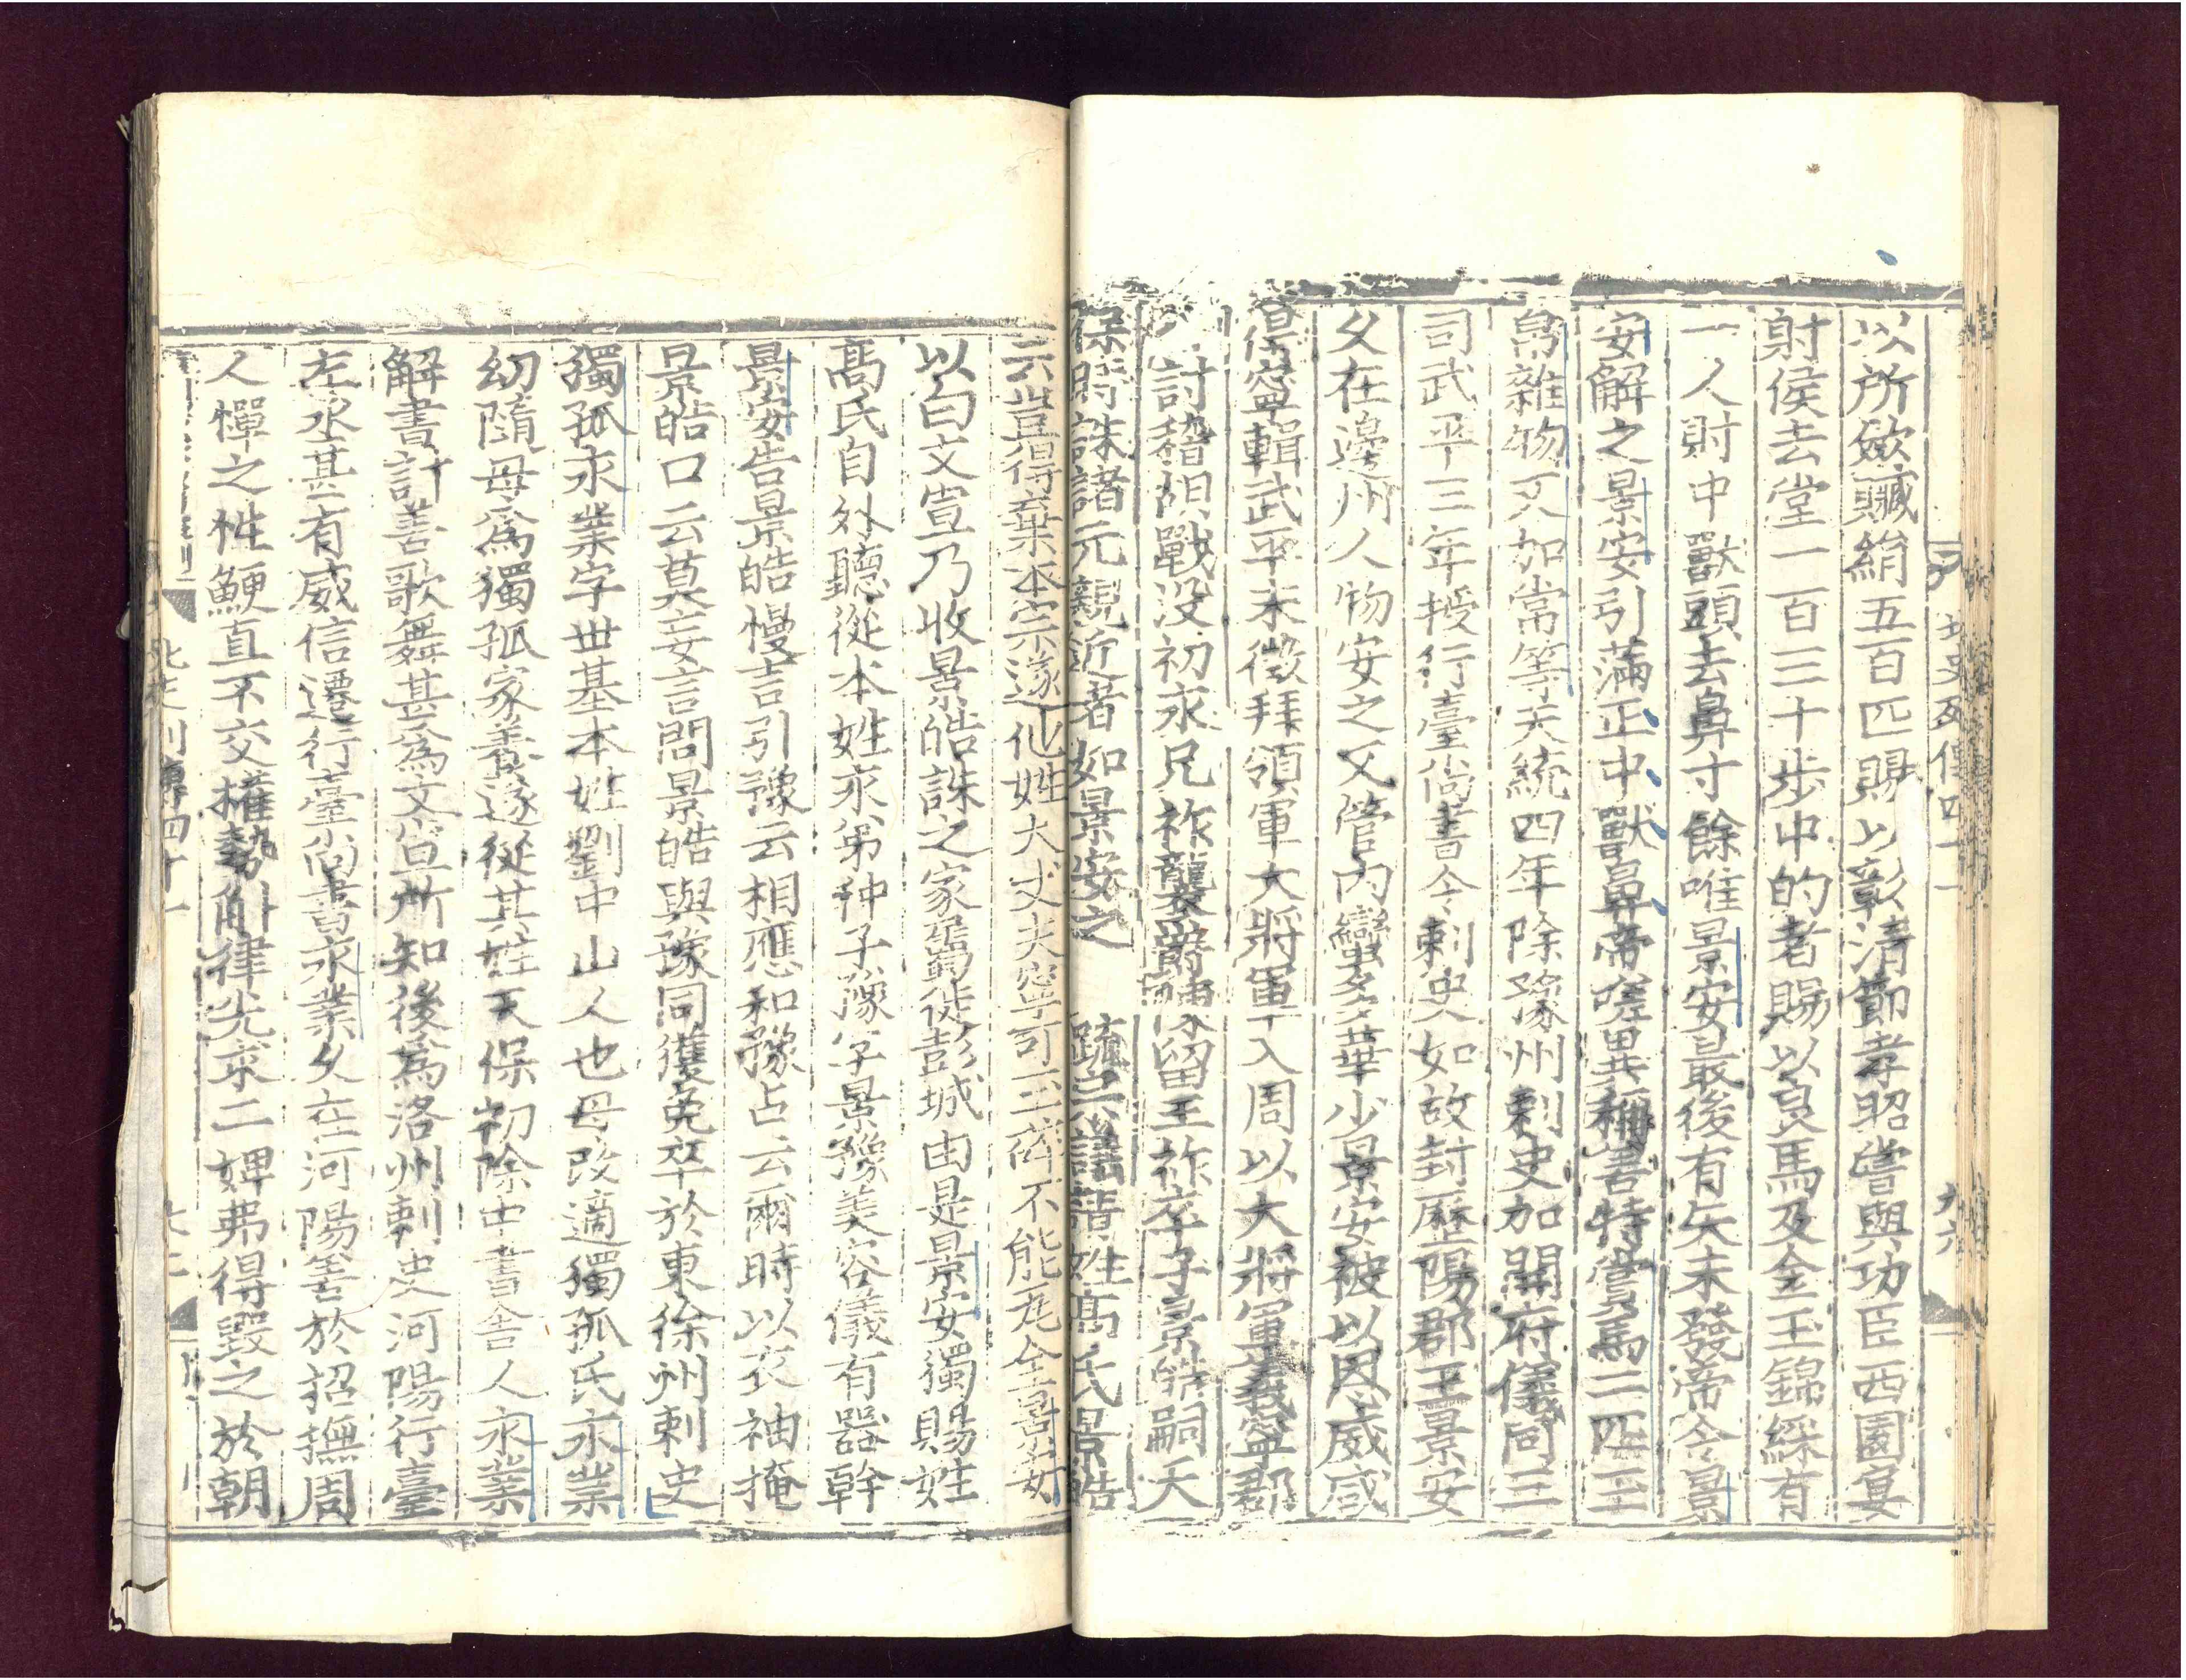 以所斂贓絹五百匹賜以彰清節孝昭嘗與功臣西園宴
射侯去堂一百三十步中的者賜以良馬及金玉錦綵有
一人射中獸頭去鼻寸餘唯景安最後有矢未發帝令景
安解之景安引滿正中獸鼻帝嗟異稱善特賞馬二匹玉
帛雜物又加常等天統四年除豫州刺史加開府儀同三
司武平三年授行臺尚書令刺史如故封歷陽郡王景安
久在邊州人物安之又管內蠻多華少景安被以恩威咸
得寧輯武平末徵拜領軍大將軍入周以大將軍義寧郡
討稽胡戰沒初永兄祚襲爵陳留王祚卒子景皓嗣天
保時誅諸元親近者如景安之 疏宗議請姓高氏景皓
云豈得棄本宗遂他姓大丈夫寧可玉碎不能瓦全景安
以白文宣乃收景皓誅之家屬徙彭城由是景安獨賜姓
高氏自外聽從本姓永弟种子豫字景豫美容儀有器幹
景安告景皓慢言引豫云相應和豫占云爾時以衣袖掩
景皓口云莫妄言問景皓與豫同獲免卒於東徐州刺史
獨孤永業字世基本姓劉中山人也母改適獨孤氏永業
幼隨母爲獨孤家養遂從其姓天保初除中書舍人永業
解書計善歌舞甚爲文宣所知後爲洛州刺史河陽行臺
左丞甚有威信遷行臺尚書永業久在河陽善於招撫周
人憚之性鯁直不交權勢斛律光求二婢弗得毀之於朝
北史列傳四十一